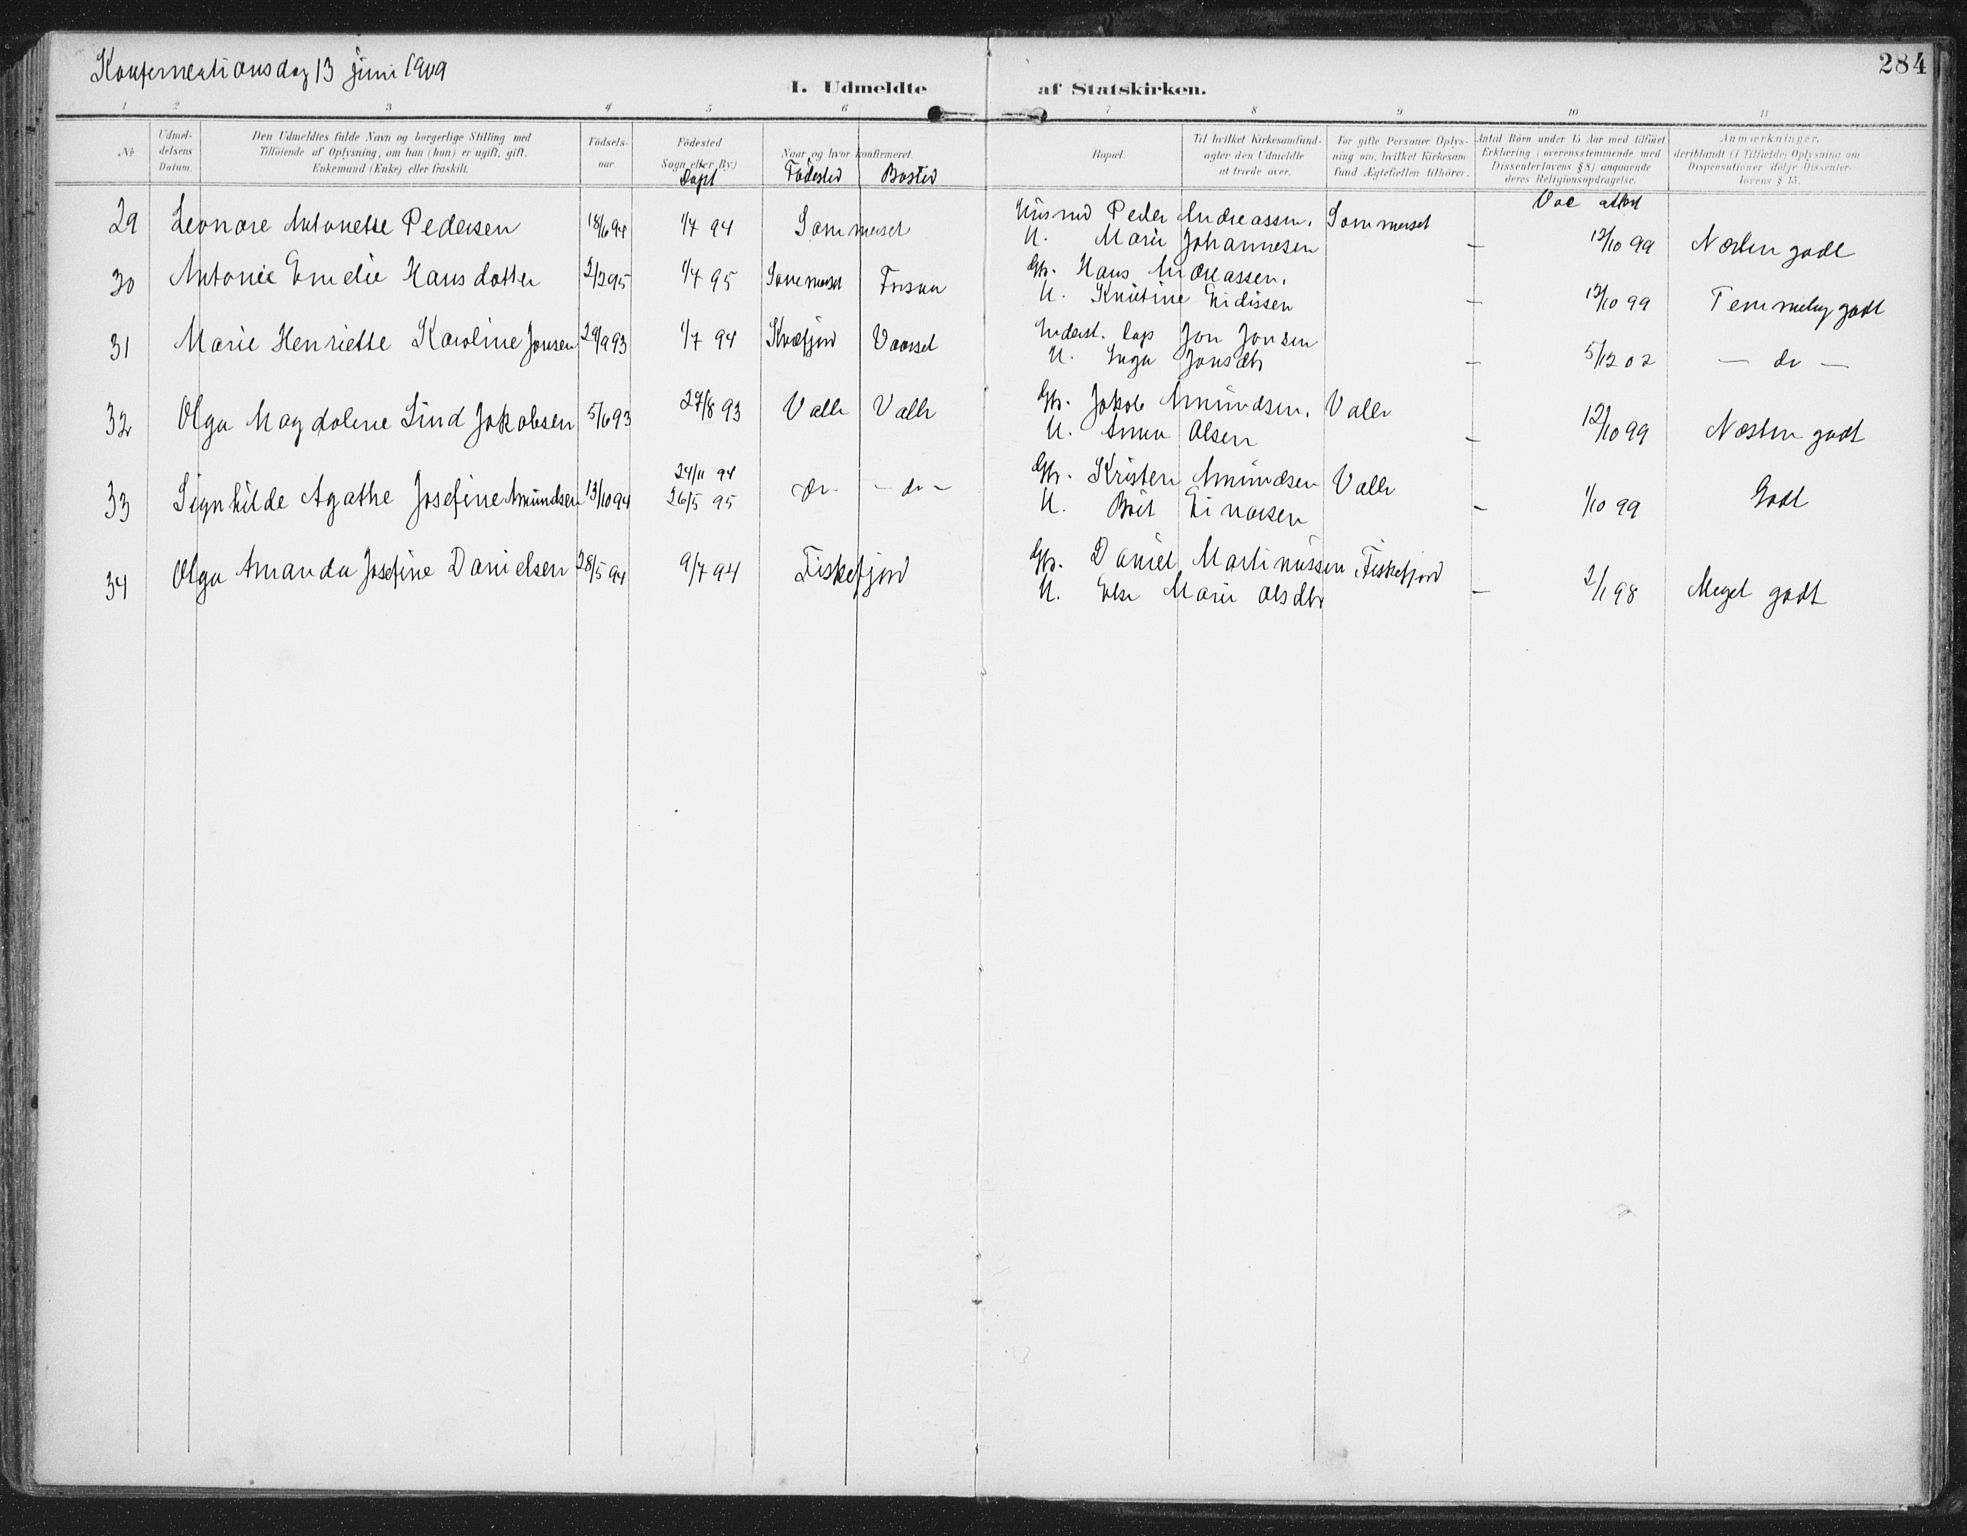 Konfirmationsdag 13 juni 1909
284
I. Udmeldte af Statskirken.
1 2 3 4 5 6 7 8 9 10 11
No. Udmeldelsens Datum. Den Udmeldtes fulde Navn og borgerlige Stilling med Tilföiende af Oplysning, om han (hun) er ugift, gift, Enkemand (Enke) eller fraskilt. Födselsaar. Födested Sogn eller By) Naar og hvor konfirmeret. Bopæl. Til hvilket Kirkesamfund agter den Udmeldte at træde over. For gifte Personer Oplysning om, hvilket Kirkesamfund Ægtefællen tilhörer. Antal Börn under 15 Aar med tilföiet Erklæring i overensstemmende med Dissenterlovens § 8) angaaende deres Religionsopdragelse. Anmærkninger, deriblandt (i Tilfælde) Oplysning om Dispensationer ifölge Dissenterlovens § 15.
Döpt Födested Bosted
Vac attest
29 Leonore Antonette Pedersen 18/6 94 1/7 94 Sommerset Husmd Peder Andreassen, Sommerset
H. Marie Johannesen - 12/10 99 Næsten godt
30 Antonie Emelie Hansdatter 2/2 95 1/7 95 Sommerset Gbr. Hans Andreassen,
H. Kristine Eidissen - 12/10 99 Temmelig godt
31 Marie Henriette Karoline Jonsen 29/9 93 1/7 94 Kvæfjord Vaarset Lap Jon Jonsen
H. Inga Jonsdtr - 5/12 02 - do -
32 Olga Magdalene Lind Jakobsen 5/6 93 27/8 93 Valle Valle Gbr. Jakob Amundsen, Valle
H. Anna Olsen - 12/10 99 Næsten godt
33 Signhilde Agathe Josefine Amundsen 13/10 94 24/11 94
26/5 95 - do - - do - Gbr. Kristen Amundsen Valle
H. Berit Einarsen - 1/10 99 Godt
34 Olga Amanda Josefine Danielsen 28/5 94 9/7 94 Fiskefjord Gbr. Daniel Martinussen, Fiskefjord
H. Else Marie Olsdtr - 2/1 98 Meget godt